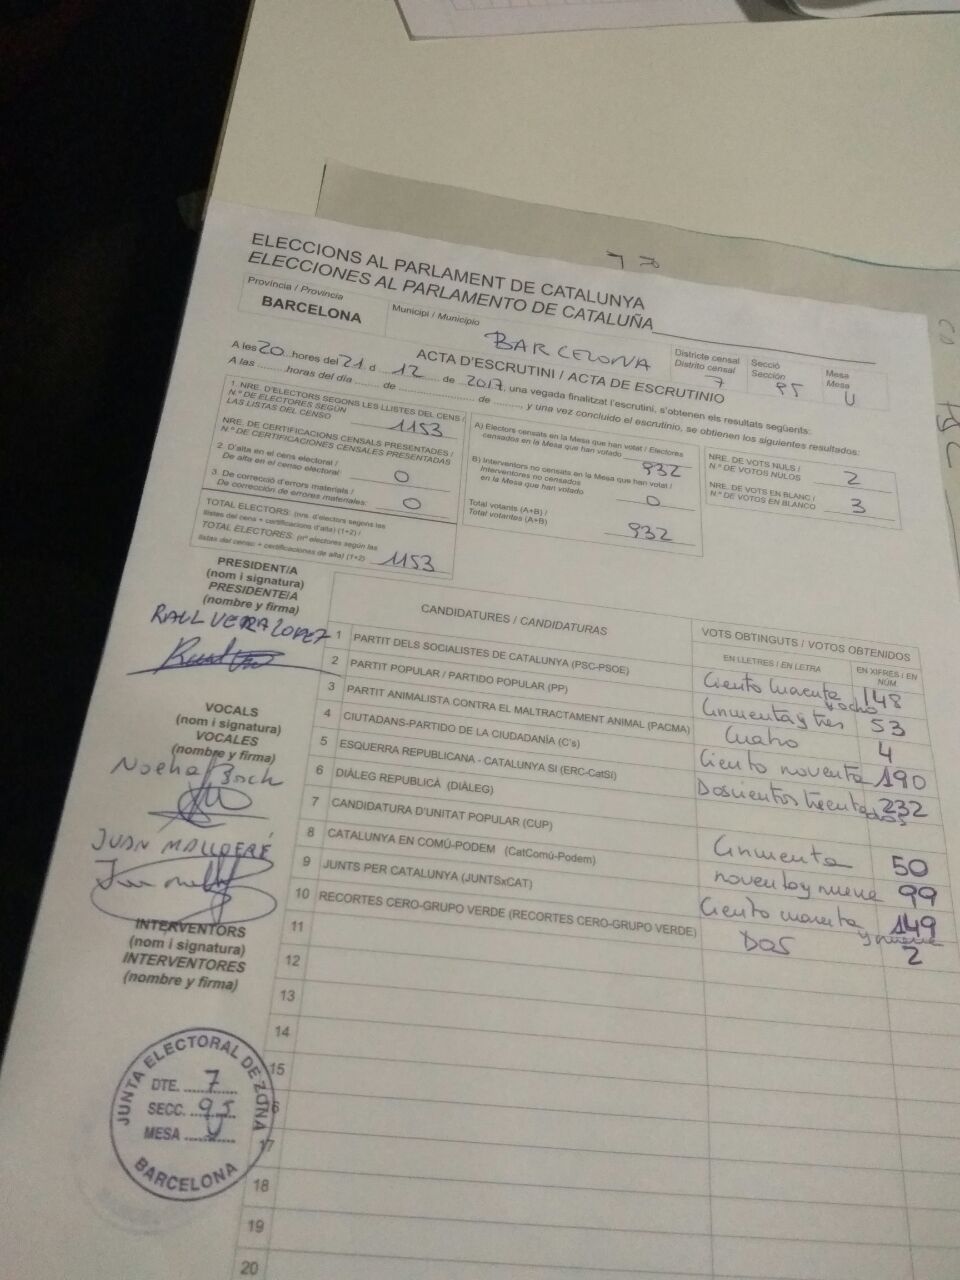 7 70
ELECCIONS AL PARLAMENT DE CATALUNYA
ELECCIONES AL PARLAMENTO DE CATALUÑA
Província / Provincia
BARCELONA
Municipi / Municipio
BARCELONA
Districte censal
Distrito censal
7
Secció
Sección
95
Mesa
Mesa
U
ACTA D'ESCRUTINI / ACTA DE ESCRUTINIO
A les 20 hores del 21 d 12 de 2017, una vegada finalitzat l'escrutini, s'obtenen els resultats següents:
A las ........ horas del día ........ de ........ de ........, y una vez concluido el escrutinio, se obtienen los siguientes resultados:
1. NRE. D'ELECTORS SEGONS LES LLISTES DEL CENS /
N.º DE ELECTORES SEGÚN
LAS LISTAS DEL CENSO
1153
NRE. DE CERTIFICACIONS CENSALS PRESENTADES /
N.º DE CERTIFICACIONES CENSALES PRESENTADAS
2. D'alta en el cens electoral /
De alta en el censo electoral
0
3. De correcció d'errors materials /
De corrección de errores materiales:
0
TOTAL ELECTORS: (nre. d'electors segons les
llistes del cens + certificacions d'alta) (1+2) /
TOTAL ELECTORES: (nº electores según las
listas del censo + certificaciones de alta) (1+2)
1153
A) Electors censats en la Mesa que han votat / Electores
censados en la Mesa que han votado
932
B) Interventors no censats en la Mesa que han votat /
Interventores no censados
en la Mesa que han votado
0
Total votants (A+B) /
Total votantes (A+B)
932
NRE. DE VOTS NULS /
N.º DE VOTOS NULOS
2
NRE. DE VOTS EN BLANC /
N.º DE VOTOS EN BLANCO
3
PRESIDENT/A
(nom i signatura)
PRESIDENTE/A
(nombre y firma)
RAUL VERA LOPEZ
VOCALS
(nom i signatura)
VOCALES
(nombre y firma)
JUAN
INTERVENTORS
(nom i signatura)
INTERVENTORES
(nombre y firma)
CANDIDATURES / CANDIDATURAS
VOTS OBTINGUTS / VOTOS OBTENIDOS
EN LLETRES / EN LETRA
EN XIFRES / EN NÚM.
1 PARTIT DELS SOCIALISTES DE CATALUNYA (PSC-PSOE)
Ciento cuarenta y ocho 148
2 PARTIT POPULAR / PARTIDO POPULAR (PP)
Cincuenta y tres 53
3 PARTIT ANIMALISTA CONTRA EL MALTRACTAMENT ANIMAL (PACMA)
Cuatro 4
4 CIUTADANS-PARTIDO DE LA CIUDADANÍA (C's)
Ciento noventa 190
5 ESQUERRA REPUBLICANA - CATALUNYA SÍ (ERC-CatSí)
Doscientos treinta dos 232
6 DIÀLEG REPUBLICÀ (DIÀLEG)
7 CANDIDATURA D'UNITAT POPULAR (CUP)
Cincuenta 50
8 CATALUNYA EN COMÚ-PODEM (CatComú-Podem)
noventa y nueve 99
9 JUNTS PER CATALUNYA (JUNTSxCAT)
Ciento cuarenta y nueve 149
10 RECORTES CERO-GRUPO VERDE (RECORTES CERO-GRUPO VERDE)
Dos 2
11
12
13
14
15
16
17
18
19
20
JUNTA ELECTORAL DE ZONA
DTE. 7
SECC. 95
MESA U
BARCELONA